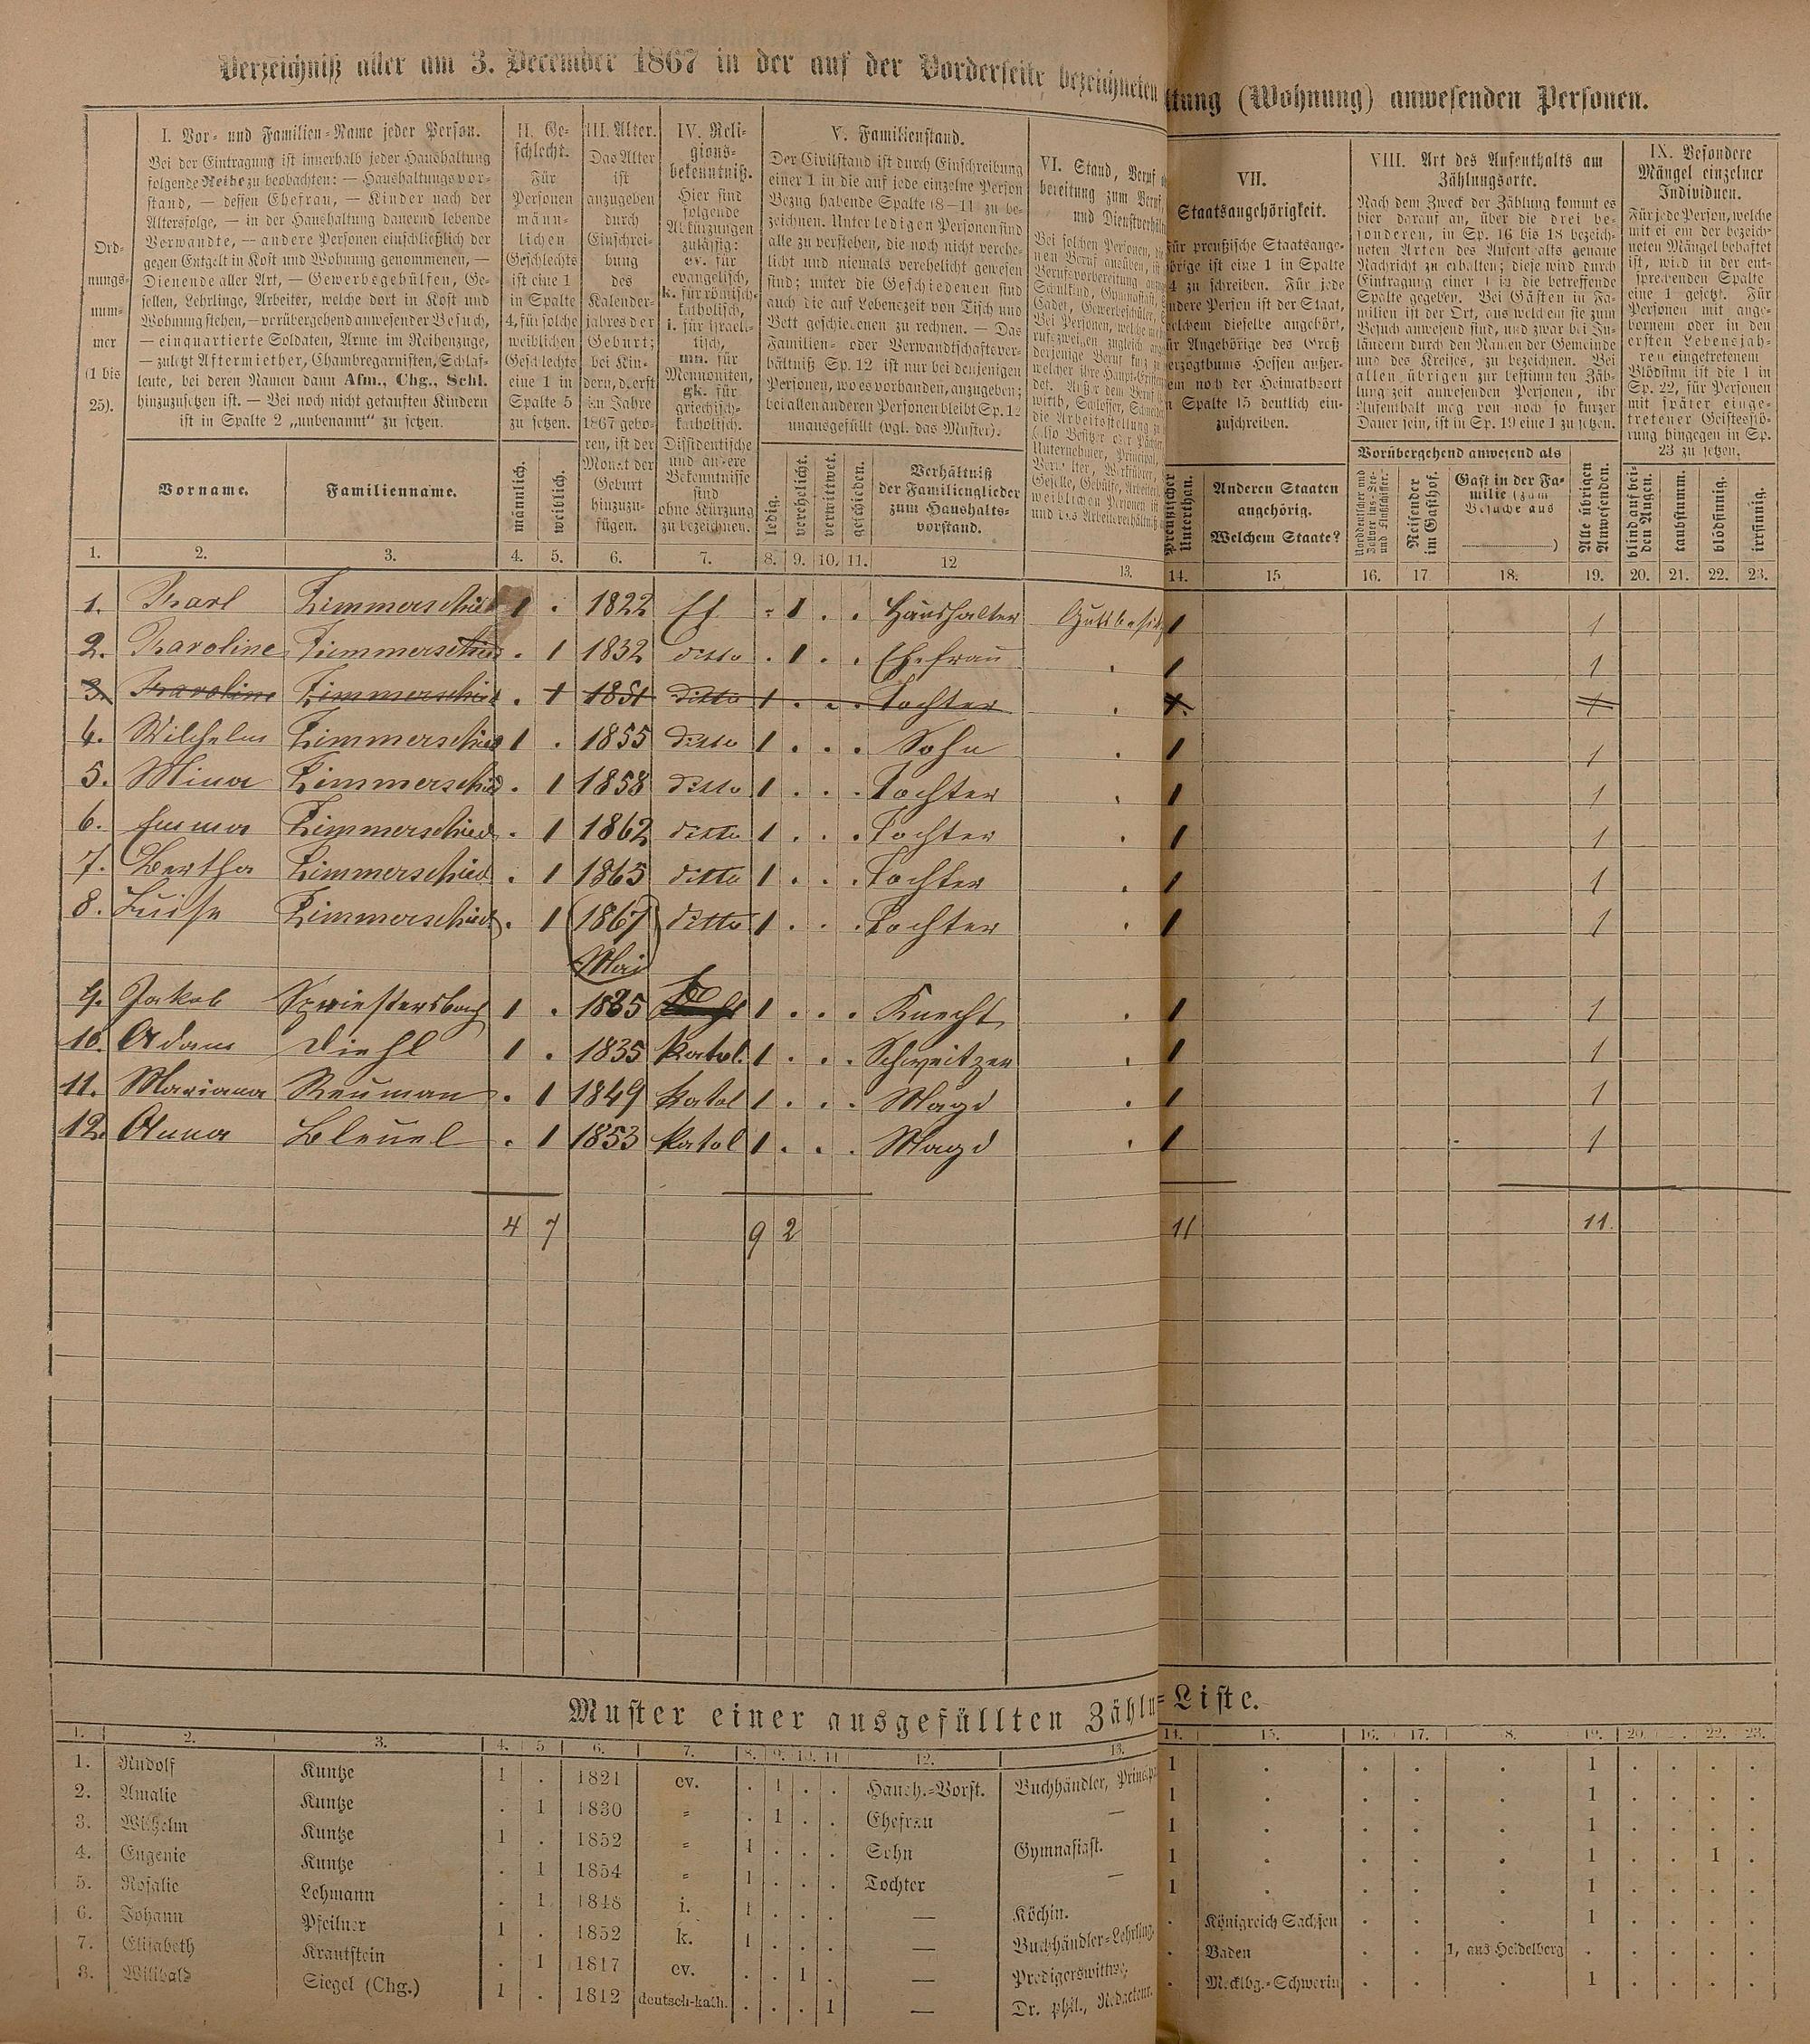 Verzeichniß aller am 3. December 1867 in der auf der Vorderseite bezeichneten
ltung (Wohnung) anwesenden Personen.
Ord-
nungs-
num-
mer
(1 bis
25).
I. Vor- und Familien-Name jeder Person.
Bei der Eintragung ist innerhalb jeder Haushaltung
folgende Reihe zu beobachten: — Haushaltungsvor-
stand, — dessen Ehefrau, — Kinder nach der
Altersfolge, — in der Haushaltung dauernd lebende
Verwandte, — andere Personen einschließlich der
gegen Entgelt in Kost und Wohnung genommenen, —
Dienende aller Art, — Gewerbsgehülfen, Ge-
sellen, Lehrlinge, Arbeiter, welche dort in Kost und
Wohnung stehen, — vorübergehend anwesender Besuch,
— einquartierte Soldaten, Arme im Reihenzuge,
— zuletzt Aftermiether, Chambregarnisten, Schlaf-
leute, bei deren Namen dann Afm., Chg., Schl.
hinzuzusetzen ist. — Bei noch nicht getauften Kindern
ist in Spalte 2 „unbenannt“ zu setzen.
Vorname.
Familienname.
II. Ge-
schlecht.
Für
Personen
männ-
lichen
Geschlechts
ist eine 1
in Spalte
4, für solche
weiblichen
Geschlechts
eine 1 in
Spalte 5
zu setzen.
männlich.
weiblich.
III. Alter.
Das Alter
ist
anzugeben
durch
Einschrei-
bung
des
Kalender-
jahres der
Geburt;
bei Kin-
dern, d. erst
im Jahre
1867 gebo-
ren, ist der
Monat der
Geburt
hinzuzu-
fügen.
IV. Reli-
gions-
bekenntniß.
Hier sind
folgende
Abkürzungen
zulässig:
ev. für
evangelisch,
k. für römisch-
katholisch,
i. für israeli-
tisch,
mn. für
Mennoniten,
gk. für
griechisch-
katholisch.
Dissidentische
und andere
Bekenntnisse
sind
ohne Kürzung
zu bezeichnen.
V. Familienstand.
Der Civilstand ist durch Einschreibung
einer 1 in die auf jede einzelne Person
Bezug habende Spalte (8—11) zu be-
zeichnen. Unter ledigen Personen sind
alle zu verstehen, die noch nicht verehe-
licht und niemals verehelicht gewesen
sind; unter die Geschiedenen sind
auch die auf Lebenszeit von Tisch und
Bett geschiedenen zu rechnen. — Das
Familien- oder Verwandtschaftsver-
hältniß Sp. 12 ist nur bei denjenigen
Personen, wo es vorhanden, anzugeben;
bei allen anderen Personen bleibt Sp. 12
unausgefüllt (vgl. das Muster).
ledig.
verehelicht.
verwittwet.
geschieden.
Verhältniß
der Familienglieder
zum Haushalts-
vorstand.
VI. Stand, Beruf
bereitung zum Beruf,
und
Bei solchen Personen,
VII.
Staatsangehörigkeit.
Für preußische Staatsange-
hörige ist eine 1 in Spalte
14 zu schreiben. Für jede
andere Person ist der Staat,
welchem dieselbe angehört,
für Angehörige des Groß
herzogthums Hessen außer-
dem noch der Heimathsort
in Spalte 15 deutlich ein-
zuschreiben.
Preußischer
Unterthan.
Anderen Staaten
angehörig.
Welchem Staate?
VIII. Art des Aufenthalts am
Zählungsorte.
Nach dem Zweck der Zählung kommt es
hier darauf an, über die drei be-
sonderen, in Sp. 16 bis 18 bezeich-
neten Arten des Aufenthalts genaue
Nachricht zu erhalten; diese wird durch
Eintragung einer 1 in die betreffende
Spalte gegeben. Bei Gästen in Fa-
milien ist der Ort, aus welchem sie zum
Besuch anwesend sind, und zwar bei In-
ländern durch den Namen der Gemeinde
und des Kreises, zu bezeichnen. Bei
allen übrigen zur bestimmten Zäh-
lungszeit anwesenden Personen, ihr
Aufenthalt mag von noch so kurzer
Dauer sein, ist in Sp. 19 eine 1 zu setzen.
Vorübergehend anwesend als
Reisender
im Gasthof.
Gast in der Fa-
milie (zum
Besuche aus
)
Alle übrigen
Anwesenden.
IX. Besondere
Mängel einzelner
Individuen.
Für jede Person, welche
mit einem der bezeich-
neten Mängel behaftet
ist, wird in der ent-
sprechenden Spalte
eine 1 gesetzt. Für
Personen mit ange-
bornem oder in den
ersten Lebensjah-
ren eingetretenem
Blödsinn ist die 1 in
Sp. 22, für Personen
mit später einge-
tretener Geistesstö-
rung hingegen in Sp.
23 zu setzen.
blind auf bei-
den Augen.
taubstumm.
blödsinnig.
irrsinnig.
1. 2. 3. 4. 5. 6. 7. 8. 9. 10. 11. 12 13. 14. 15 16. 17 18. 19. 20. 21. 22. 23.
1. Karl Zimmerschied 1 . 1822 Ev . 1 . . Haushalter Gutsbesitz 1 1
2. Karoline Zimmerschied . 1 1832 ditto . 1 . . Ehefrau . 1 1
3. Karoline Zimmerschied . 1 1851 ditto 1 . . . Tochter . 1. 1
4. Wilhelm Zimmerschied 1 . 1855 ditto 1 . . . Sohn . 1 1
5. Mina Zimmerschied . 1 1858 ditto 1 . . . Tochter . 1 1
6. Emma Zimmerschied . 1 1862 ditto 1 . . . Tochter . 1 1
7. Bertha Zimmerschied . 1 1865 ditto 1 . . . Tochter . 1 1
8. Luise Zimmerschied . 1 1867 ditto 1 . . . Tochter . 1 1
Mai
9. Jakob Spriestersbach 1 . 1835 1 . . . Knecht . 1 1
10. Adam Diehl 1 . 1835 Katol. 1 . . . Schweitzer . 1 1
11. Mariana Neuman . 1 1849 Katol 1 . . . Magd . 1 1
12. Anna Bleuel . 1 1853 Katol 1 . . . Magd . 1 1
4 7 9 2 11 11.
Muster einer ausgefüllten Zähl=Liste.
1. 2. 3. 4. 5 6. 7. 8. 9. 10. 11 12. 13. 14. 15. 16. 17. 8. 19. 20 22. 23.
1. Rudolf Kuntze 1 . 1821 ev. . 1 . . Haush.-Vorst. Buchhändler, 1 . . . . 1 . . . .
2. Amalie Kuntze . 1 1830 = . 1 . . Ehefrau — 1 . . . . 1 . . . .
3. Wilhelm Kuntze 1 . 1852 = 1 . . . Sohn Gymnasiast. 1 . . . . 1 . . . .
4. Eugenie Kuntze . 1 1854 = 1 . . . Tochter — 1 . . . . 1 . . 1 .
5. Rosalie Lehmann . 1 1848 i. 1 . . . — Köchin. 1 . . . . 1 . . . .
6. Johann Pfeilner 1 . 1852 k. 1 . . . — Buchhändler-Lehrling. . Königreich Sachsen . . . 1 . . . .
7. Elisabeth Krautstein . 1 1817 ev. . . 1 . — Predigerswittwe. . Baden . . 1, aus Heidelberg . . . . .
8. Willibald Siegel (Chg.) 1 . 1812 deutsch-kath. . . . 1 — Dr. phil., Redacteur. . Mecklbg.-Schwerin . . . 1 . . . .